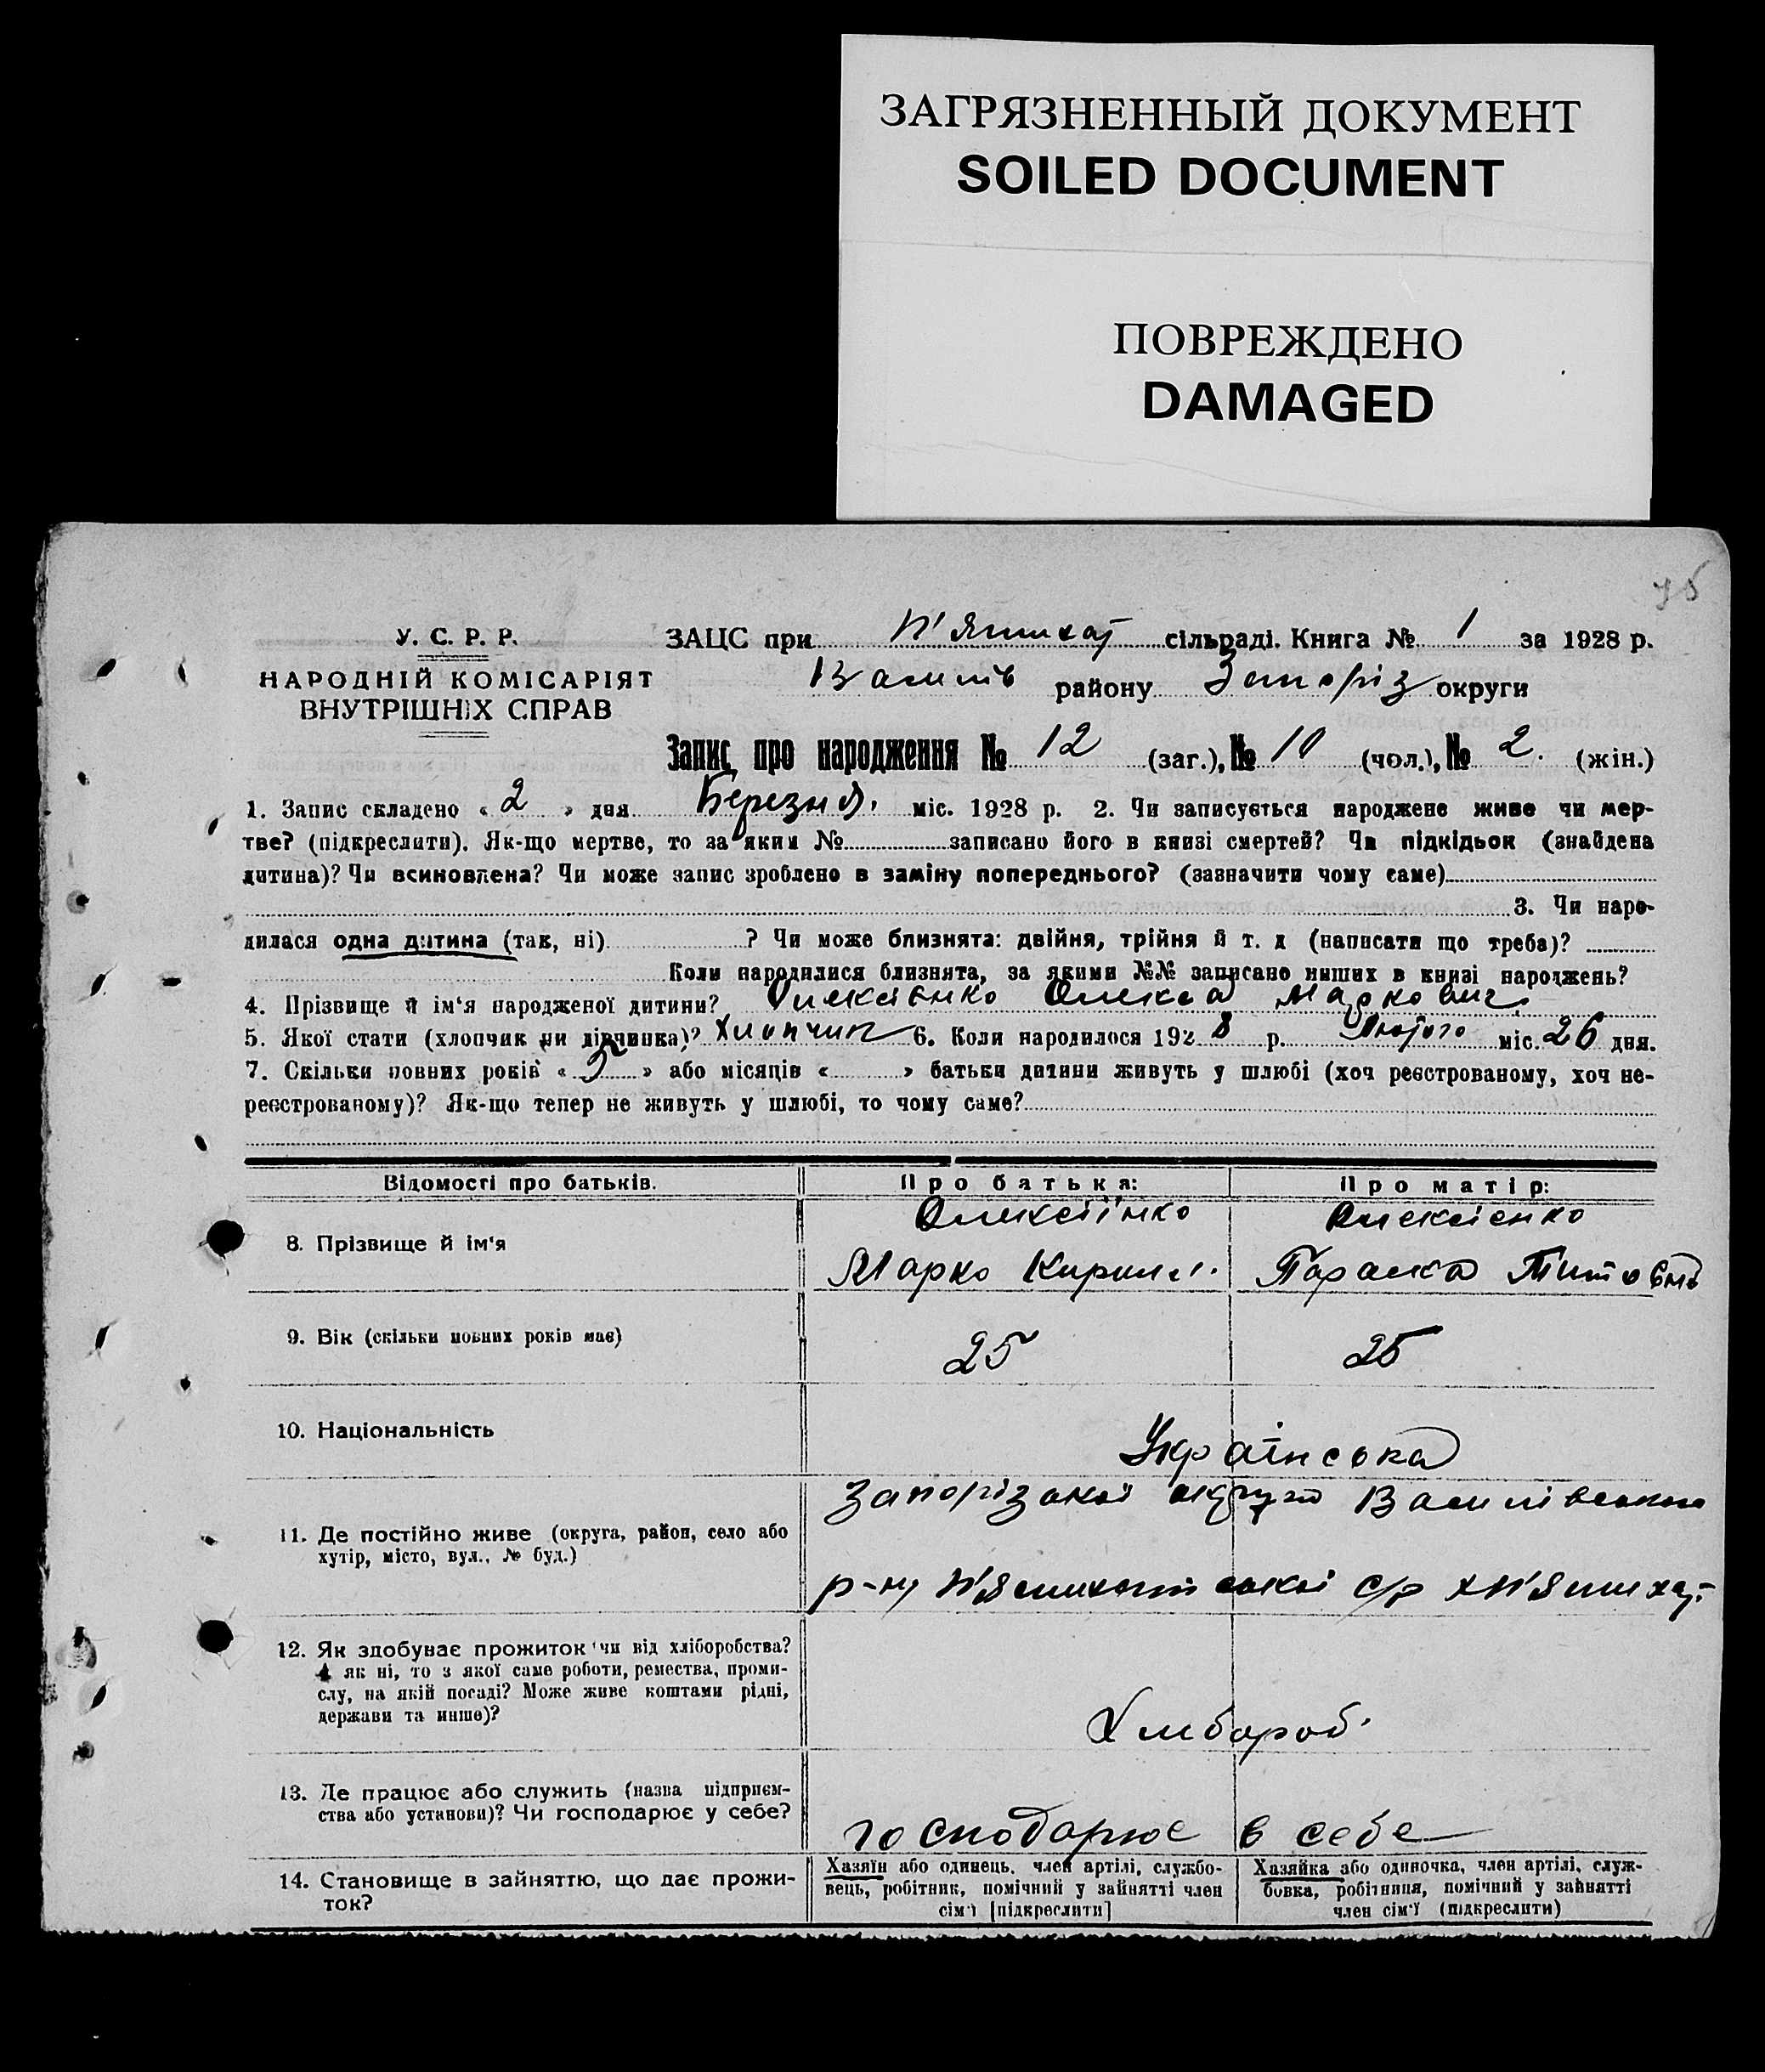 ЗАГРЯЗНЕННЫЙ ДОКУМЕНТ
SOILED DOCUMENT
ПОВРЕЖДЕНО
DAMAGED
У. С. Р. Р.
НАРОДНІЙ КОМІСАРІЯТ
ВНУТРІШНІХ СПРАВ
ЗАЦС при П'ятихат сільраді. Книга № 1 за 1928 р.
Василів району Запоріз округи
Запис про народження № 12 (заг.), № 10 (чол.), № 2. (жін.)
1. Запис складено « 2 » дня Березня. міс. 1928 р. 2. Чи записується народжене живе чи мер-
тве? (підкреслити). Як-що мертве, то за яким № записано його в книзі смертей? Чи підкідьок (знайдена
дитина)? Чи всиновлена? Чи може запис зроблено в заміну попереднього? (зазначити чому саме)
3. Чи наро-
дилася одна дитина (так, ні) ? Чи може близнята: двійня, трійня й т. д (написати що треба)?
Коли народилися близнята, за якими №№ записано инших в книзі народжень?
4. Прізвище й ім'я народженої дитини? Олексієнко Олекса Маркович
5. Якої стати (хлопчик чи дівчинка)? Хлопчик 6. Коли народилося 1928 р. Лютого міс. 26 дня.
7. Скільки повних років « » або місяців « » батьки дитини живуть у шлюбі (хоч реєстрованому, хоч не-
реєстрованому)? Як-що тепер не живуть у шлюбі, то чому саме?
Відомості про батьків. Про батька: Про матір:
8. Прізвище й ім'я
Олексіїнко Олексієнко
Марко Кирил. Параска Титовна
9. Вік (скільки повних років має) 25 25
10. Національність Українська
11. Де постійно живе (округа, район, село або
хутір, місто, вул., № буд.)
Запорізької округи Василівського
р-ну П'ятихатської с/р х П'ятихат-
12. Як здобуває прожиток чи від хліборобства?
А як ні, то з якої саме роботи, ремества, проми-
слу, на якій посаді? Може живе коштами рідні,
держави та инше)?
Хлібороб.
13. Де працює або служить (назва підприєм-
ства або установи)? Чи господарює у себе?
господарює в себе
14. Становище в зайняттю, що дає прожи-
ток?
Хазяїн або одинець, член артілі, службо-
вець, робітник, помічний у зайнятті член
сім'ї [підкреслити]
Хазяйка або одиночка, член артілі, служ-
бовка, робітниця, помічний у зайнятті
член сім'ї (підкреслити)